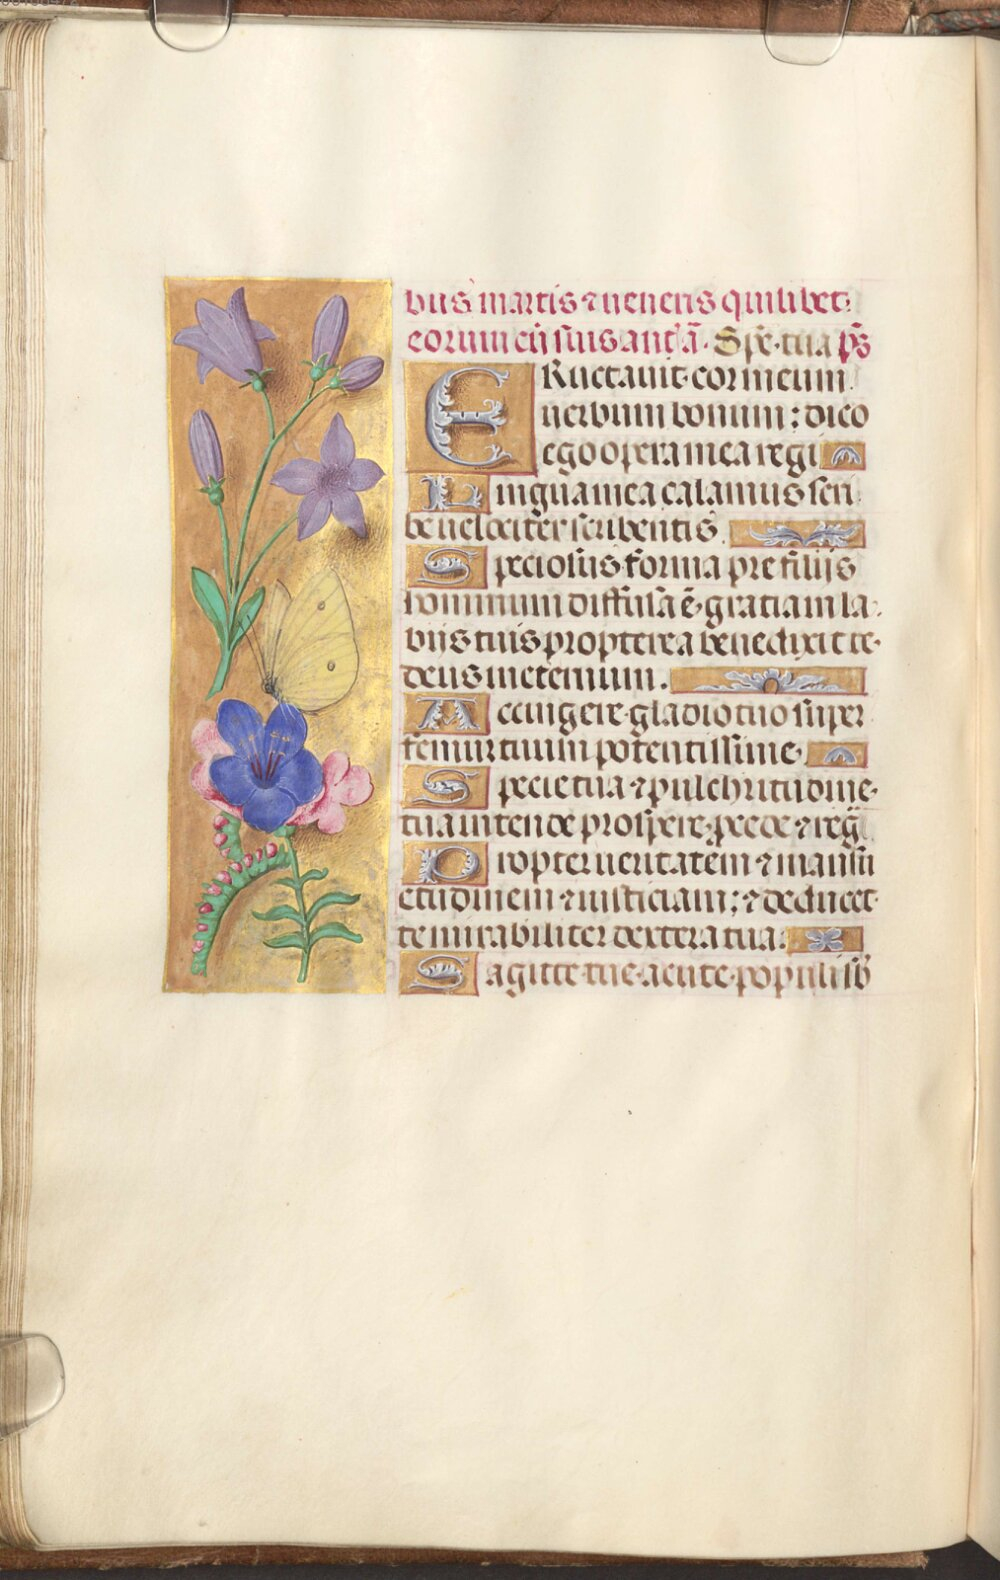 bus martis ⁊ veneris quilibet
eorum cū suis antˢ ā. Spē. tua ps̄
ERuctauit cor meum
uerbum bonum : dico
ego opera mea regi
Lingua mea calamus scri
be uelociter scribentis.
Speciosus forma pre filijs
hominum diffusa ē gratia in la
biis tuis propterea benedixit te
deus in eternum.
Accingere gladio tuo super
femur tuum potentissime.
Specie tua ⁊ pulchritudine
tua intende prospere p̱cede ⁊ reg̅
Propter ueritatem ⁊ mansu
etudinem ⁊ iusticiam : ⁊ deducet
te mirabiliter dextera tua.
Sagitte tue acute populi sb̄